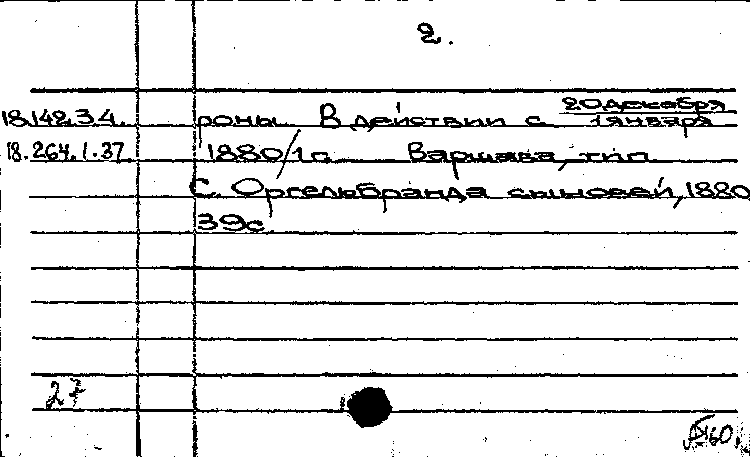 2.
20 декабря
18.142.3.4. роны В действии с 1 января
18.264.1.37. 1880/1 г. Варшава, тип.
С. Оргельбранда сыновей, 1880
39с.
27